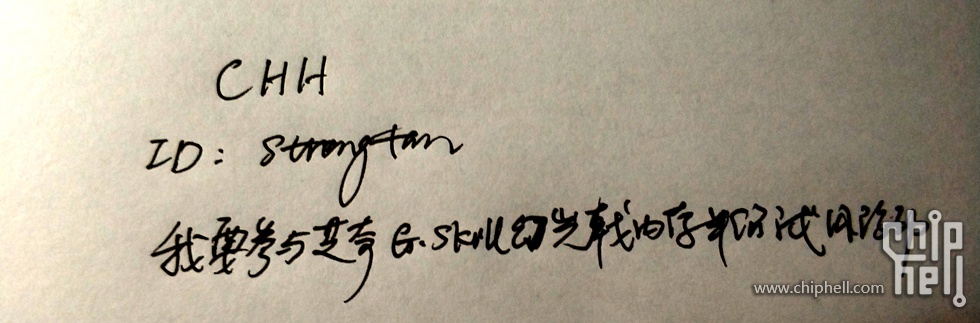 CHH
ID: strongtan
我要参与芝奇 G.Skill 幻光戟内存单条试用活动
www.chiphell.com
chip hell